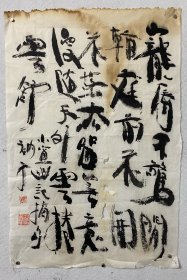 寵辱不驚閒
看庭前花開
花落去留無意
漫隨天外雲捲
雲舒
小窗幽記摘句